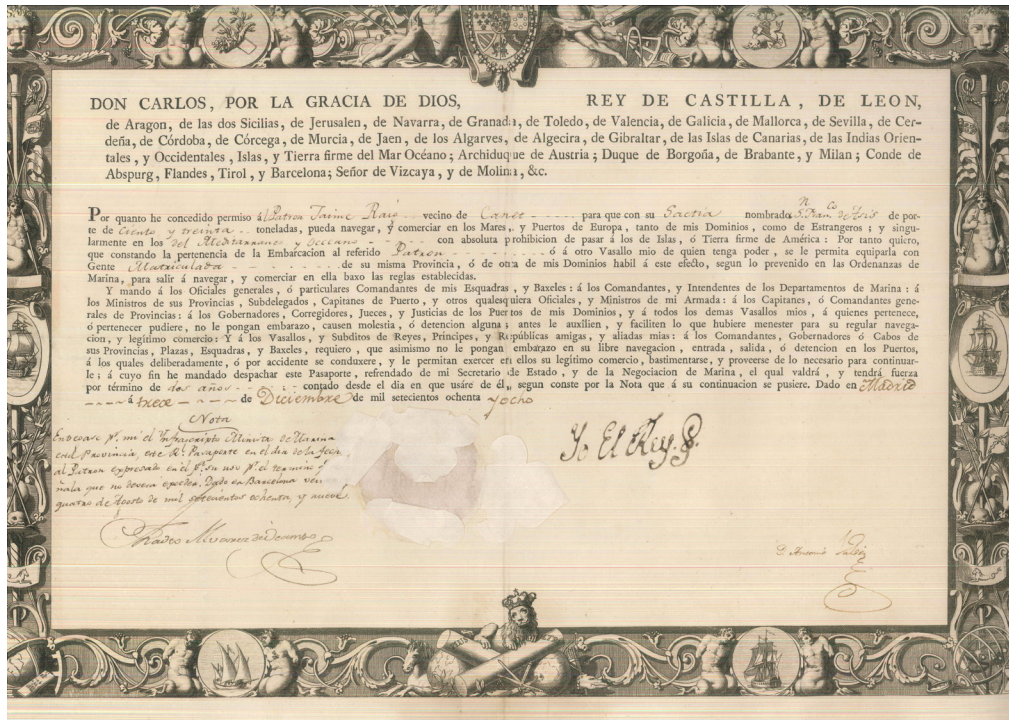 DON CARLOS, POR LA GRACIA DE DIOS, REY DE CASTILLA, DE LEON,
de Aragon, de las dos Sicilias, de Jerusalen, de Navarra, de Granada, de Toledo, de Valencia, de Galicia, de Mallorca, de Sevilla, de Cer-
deña, de Córdoba, de Córcega, de Murcia, de Jaen, de los Algarves, de Algecira, de Gibraltar, de las Islas de Canarias, de las Indias Orien-
tales, y Occidentales, Islas, y Tierra firme del Mar Océano; Archiduque de Austria; Duque de Borgoña, de Brabante, y Milan; Conde de
Abspurg, Flandes, Tirol, y Barcelona; Señor de Vizcaya, y de Molina, &c.
Por quanto he concedido permiso á l Patron Jaime Roig vecino de Canet para que con su Saetia nombrada Sn. Franco. de Asis de por-
te de ciento y treinta toneladas, pueda navegar, y comerciar en los Mares, y Puertos de Europa, tanto de mis Dominios, como de Estrangeros; y singu-
larmente en los del Mediterraneo y Occeano con absoluta prohibicion de pasar á los de Islas, ó Tierra firme de América: Por tanto quiero,
que constando la pertenencia de la Embarcacion al referido Patron ó á otro Vasallo mio de quien tenga poder, se le permita equiparla con
Gente Matriculada de su misma Provincia, ó de otra de mis Dominios habil á este efecto, segun lo prevenido en las Ordenanzas de
Marina, para salir á navegar, y comerciar en ella baxo las reglas establecidas.
Y mando á los Oficiales generales, ó particulares Comandantes de mis Esquadras, y Baxeles: á los Comandantes, y Intendentes de los Departamentos de Marina: á
los Ministros de sus Provincias, Subdelegados, Capitanes de Puerto, y otros qualesquiera Oficiales, y Ministros de mi Armada: á los Capitanes, ó Comandantes gene-
rales de Provincias: á los Gobernadores, Corregidores, Jueces, y Justicias de los Puertos de mis Dominios, y á todos los demas Vasallos mios, á quienes pertenece,
ó pertenecer pudiere, no le pongan embarazo, causen molestia, ó detencion alguna; antes le auxilien, y faciliten lo que hubiere menester para su regular navega-
cion, y legitimo comercio: Y á los Vasallos, y Subditos de Reyes, Príncipes, y Repúblicas amigas, y aliadas mias: á los Comandantes, Gobernadores ó Cabos de
sus Provincias, Plazas, Esquadras, y Baxeles, requiero, que asimismo no le pongan embarazo en su libre navegacion, entrada, salida, ó detencion en los Puertos,
á los quales deliberadamente, ó por accidente se conduxere, y le permitan exercer en ellos su legitimo comercio, bastimentarse, y proveerse de lo necesario para continuar-
le: á cuyo fin he mandado despachar este Pasaporte, refrendado de mi Secretario de Estado, y de la Negociacion de Marina, el qual valdrá, y tendrá fuerza
por término de dos años contado desde el dia en que usáre de él, segun conste por la Nota que á su continuacion se pusiere. Dado en Madrid
á trece de Diciembre de mil setecientos ochenta y ocho
Nota
Entregase pr. mi el Infrascripto Ministro de Marina
Provincia, este Rl. Pasaporte en el dia de la fecha
al Patron expresado en el pa. su uso pr. el termino
ñala que no devera exceder. Dado en Barcelona
quatro de Agosto de mil setecientos ochenta, y nueve.
Yo El Rey.
Tadeo Alvarez
D. Antonio Valdés